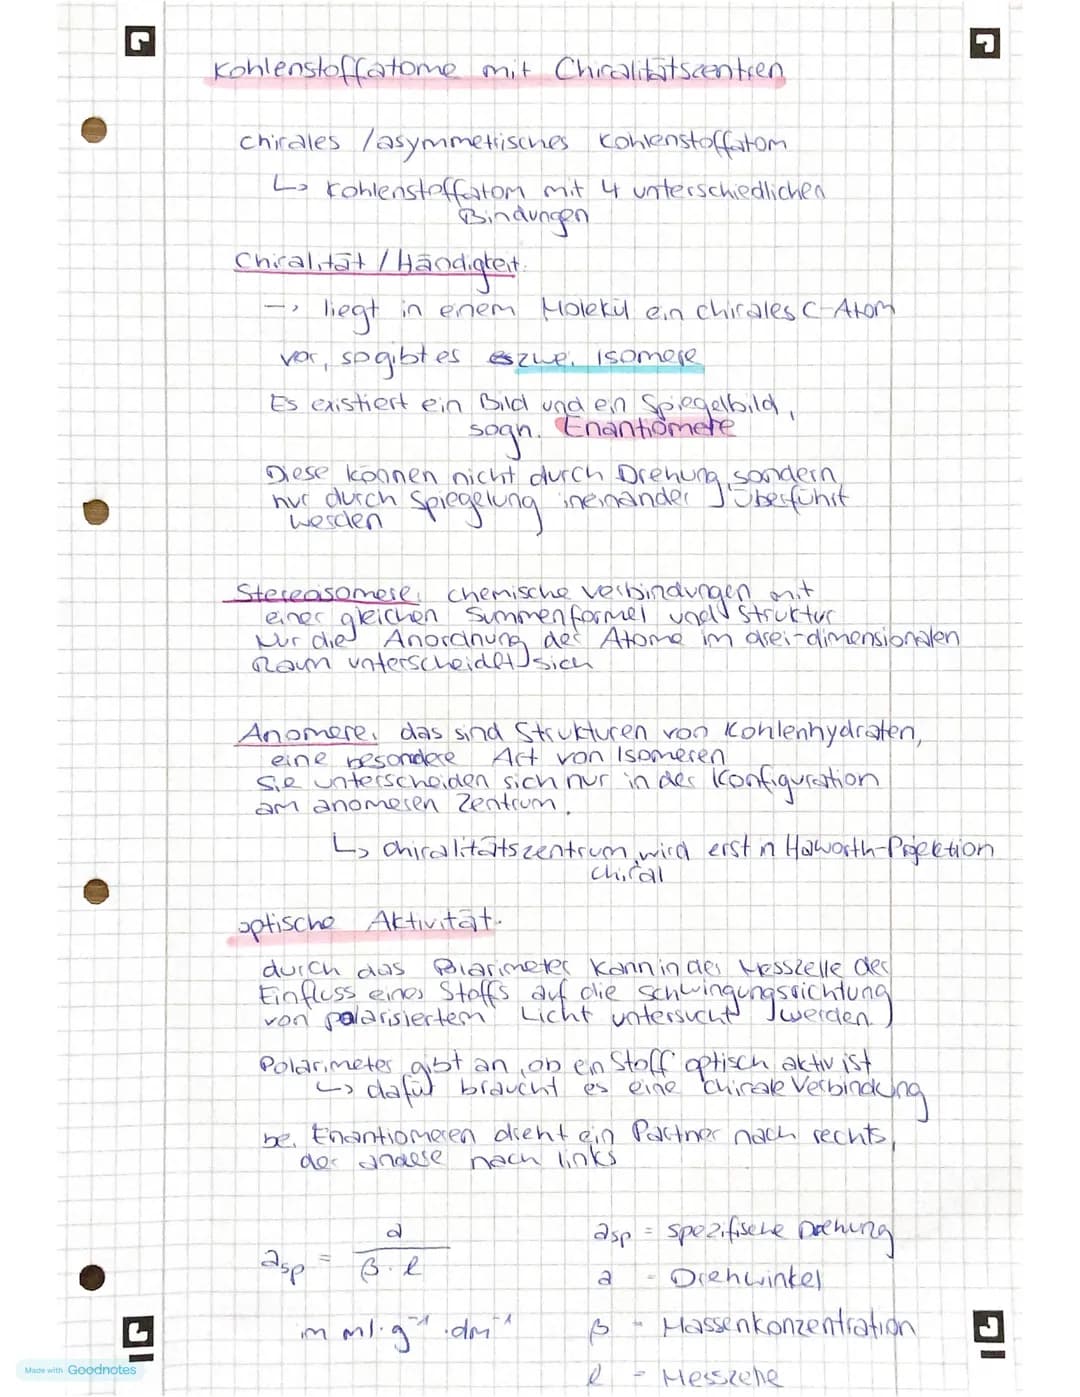 Kohlenstoffatome mit Chiralitätszentren
chirales / asymmetrisches Kohlenstoffatom
↳ Kohlenstoffatom mit 4 unterschiedlichen
Bindungen
Chiralität / Händigkeit:
→ liegt in einem Molekül ein chirales C-Atom
vor, so gibt es zwei Isomere
Es existiert ein Bild und ein Spiegelbild,
sogn. Enantiomere
Diese können nicht durch Drehung, sondern
nur durch Spiegelung ineinander überführt
werden
Stereoisomere: chemische Verbindungen mit
einer gleichen Summenformel und Struktur
Nur die Anordnung der Atome im drei-dimensionalen
Raum unterscheidet sich
Anomere: das sind Strukturen von Kohlenhydraten,
eine besondere Art von Isomeren
Sie unterscheiden sich nur in der Konfiguration
am anomeren Zentrum.
↳ Chiralitätszentrum, wird erst in Haworth-Projektion
chiral
optische Aktivität:
durch das Polarimeter kann in der Messzelle der
Einfluss eines Stoffs auf die Schwingungsrichtung
von polarisiertem Licht untersucht werden
Polarimeter gibt an, ob ein Stoff optisch aktiv ist
↳ dafür braucht es eine chirale Verbindung
bei Enantiomeren dreht ein Partner nach rechts,
der andere nach links
αsp = α / β · l
αsp = spezifische Drehung
α = Drehwinkel
in ml · g⁻¹ · dm⁻¹
β = Massenkonzentration
l = Messzelle
Made with Goodnotes